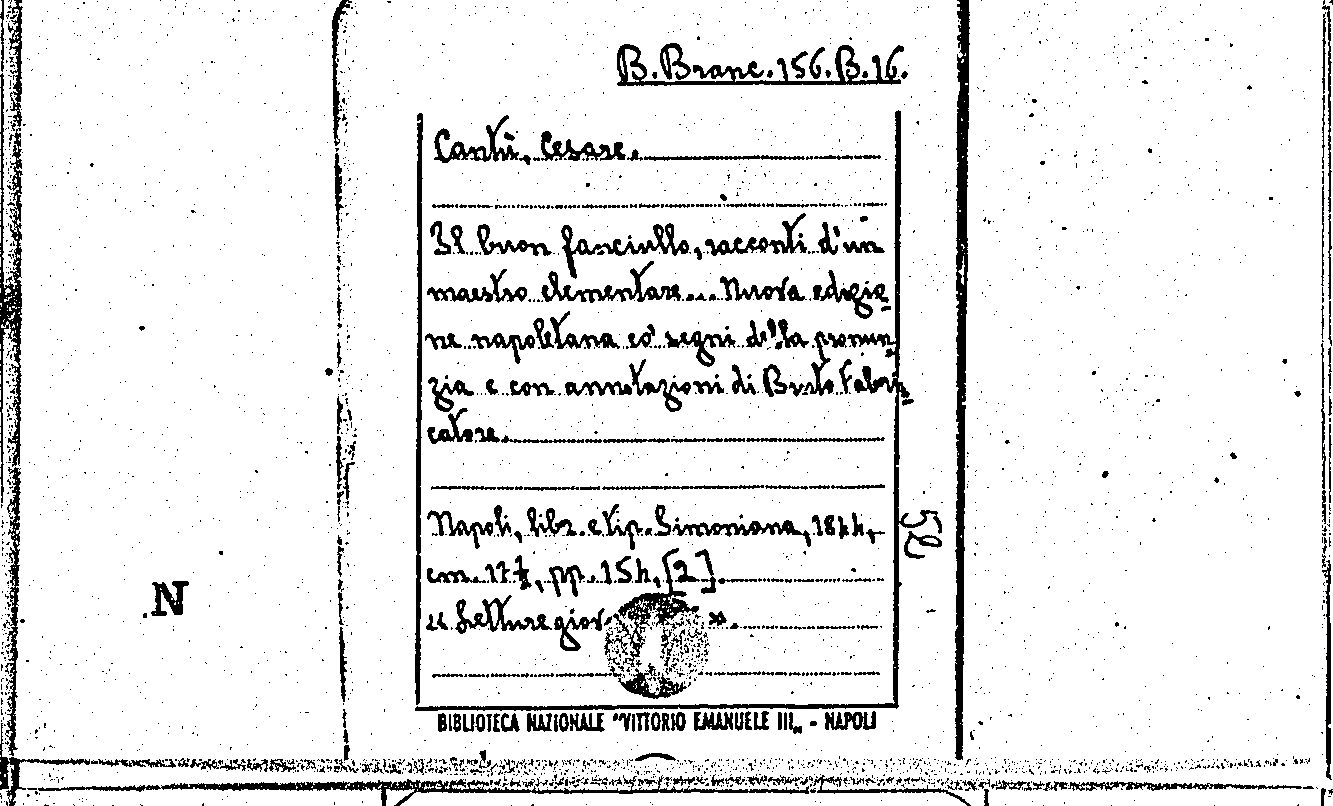 B.Branc.156.B.16.
Cantù, Cesare.
Il buon fanciullo, racconti d'un
maestro elementare... Nuova edizio=
ne napoletana co' segni della pronun=
zia e con annotazioni di Basto Fabri=
catore.
Napoli, libr. e tip. Simoniana, 1844,
cm. 17½, pp. 154, [2].
« Letture giov ».
52
N
BIBLIOTECA NAZIONALE "VITTORIO EMANUELE III„ - NAPOLI